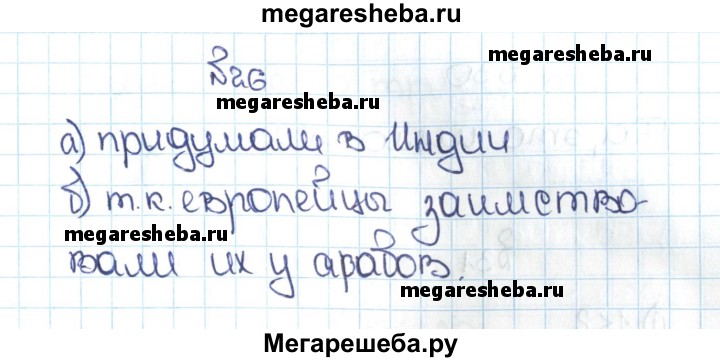 megaresheba.ru
№26
megaresheba.ru
megaresheba.ru
а) придумали в Индии
б) т.к. европейцы заимство-
megaresheba.ru
вали их у арабов.
megaresheba.ru
Мегарешеба.ру